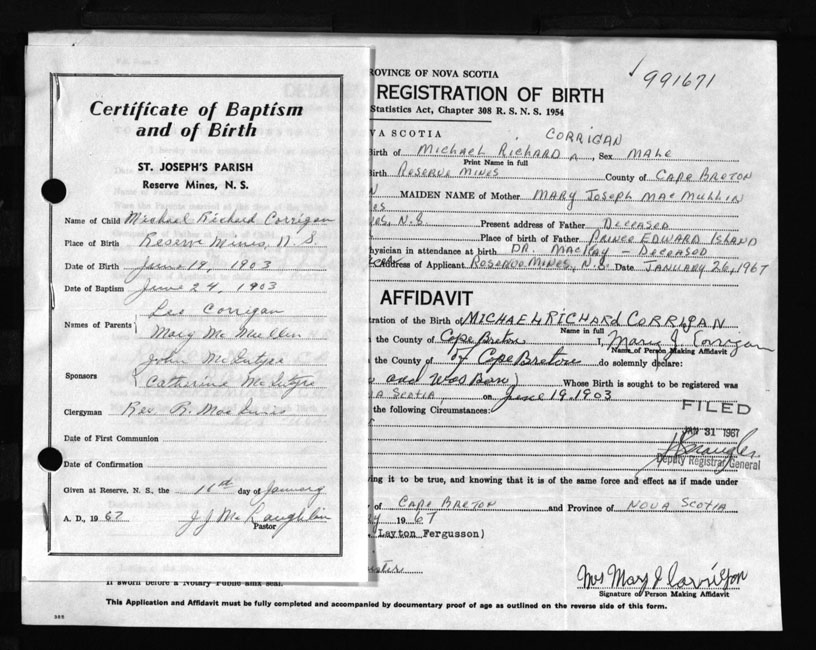 Certificate of Baptism
and of Birth
ST. JOSEPH'S PARISH
Reserve Mines, N. S.
Name of Child Michael Richard Corrigan
Place of Birth Reserve Mines, N. S.
Date of Birth June 19, 1903
Date of Baptism June 24, 1903
Leo Corrigan
Names of Parents
Mary McMullin
John McIntyre
Sponsors
Catherine McIntyre
Clergyman Rev. R. MacInnis
Date of First Communion
Date of Confirmation
Given at Reserve, N. S., the 16th day of January
A. D., 1967 J J McLaughlin
Pastor
ROVINCE OF NOVA SCOTIA
991671
REGISTRATION OF BIRTH
Statistics Act, Chapter 308 R. S. N. S. 1954
VA SCOTIA
CORRIGAN
Birth of MICHAEL RICHARD Sex MALE
Print Name in full
Birth RESERVE MINES County of CAPE BRETON
MAIDEN NAME of Mother MARY JOSEPH MACMULLIN
N.S. Present address of Father DECEASED
Place of birth of Father PRINCE EDWARD ISLAND
hysician in attendance at birth DR. MACKAY - DECEASOD
Address of Applicant N.S. Date JANUARY 26, 1967
AFFIDAVIT
tration of the Birth of MICHAEL RICHARD CORRIGAN
Name in full
n the County of Cape Breton I, Mary J Corrigan
Name of Person Making Affidavit
n the County of of Cape Breton do solemnly declare:
and was Born) Whose Birth is sought to be registered was
A SCOTIA, on June 19, 1903
FILED
the following Circumstances:
JAN 31 1967
Deputy Registrar General
ving it to be true, and knowing that it is of the same force and effect as if made under
of CAPE BRETON and Province of NOVA SCOTIA
y 1967
Layton Fergusson)
If sworn before a Notary Public affix seal.
Mrs Mary J Corrigan
Signature of Person Making Affidavit
This Application and Affidavit must be fully completed and accompanied by documentary proof of age as outlined on the reverse side of this form.